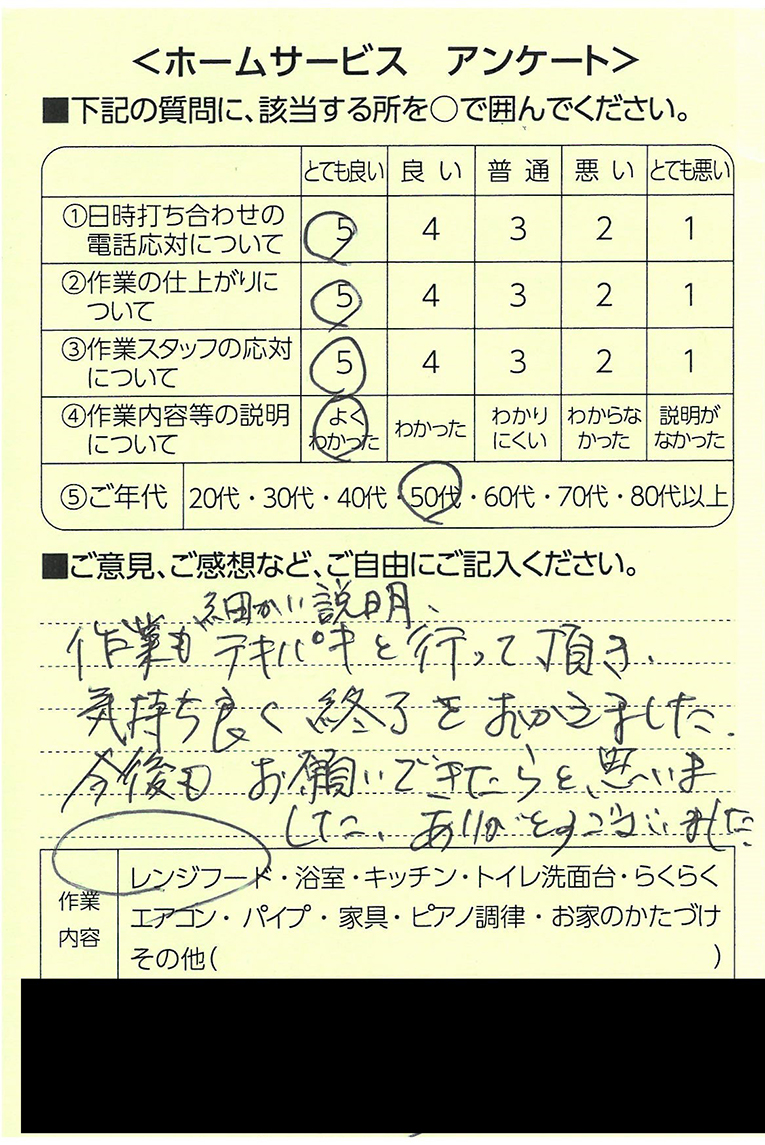 <ホームサービス　アンケート>
■下記の質問に、該当する所を○で囲んでください。
とても良い 良い 普通 悪い とても悪い
①日時打ち合わせの
電話応対について 5 4 3 2 1
②作業の仕上がりに
ついて 5 4 3 2 1
③作業スタッフの応対
について 5 4 3 2 1
④作業内容等の説明
について よく
わかった わかった わかり
にくい わからな
かった 説明が
なかった
⑤ご年代 20代・30代・40代・50代・60代・70代・80代以上
■ご意見、ご感想など、ご自由にご記入ください。
細かい説明、
作業もテキパキと行って頂き、
気持ち良く終了をむかえました.
今後もお願いできたらと、思いま
した、ありがとうございました
作業
内容
レンジフード・浴室・キッチン・トイレ洗面台・らくらく
エアコン・パイプ・家具・ピアノ調律・お家のかたづけ
その他( )